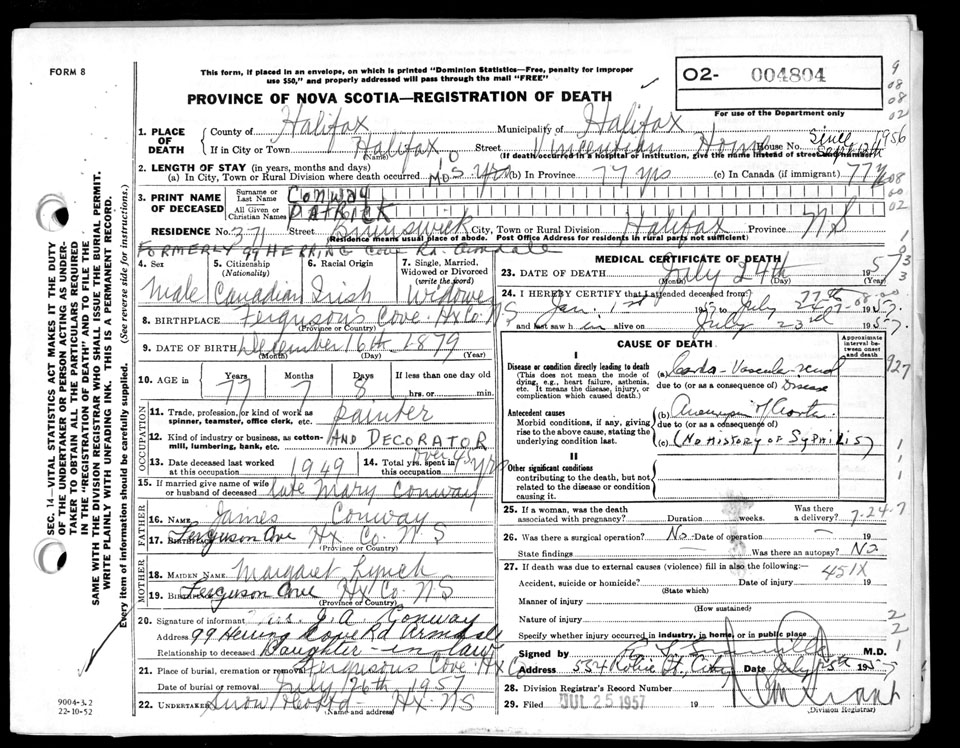 FORM 8
This form, if placed in an envelope, on which is printed "Dominion Statistics—Free, penalty for improper
use $50," and properly addressed will pass through the mail "FREE"
O2- 004804
For use of the Department only
PROVINCE OF NOVA SCOTIA—REGISTRATION OF DEATH
1. PLACE OF DEATH
County of Halifax Municipality of Halifax
If in City or Town Halifax Street Vincentian Home House No. Since Sept 12th 1956
(Name) (If death occurred in a hospital or institution, give the name instead of street and number)
2. LENGTH OF STAY (in years, months and days)
(a) In City, Town or Rural Division where death occurred 10 mos (b) In Province 77 yrs (c) In Canada (if immigrant) 77
3. PRINT NAME OF DECEASED
Surname or Last Name CONWAY
All Given or Christian Names PATRICK
RESIDENCE No. 271 Street Brunswick City, Town or Rural Division Halifax Province NS
(Residence means usual place of abode. Post Office Address for residents in rural parts not sufficient)
FORMERLY 99 HERRING Cove Rd. Armdale
4. Sex Male
5. Citizenship (Nationality) Canadian
6. Racial Origin Irish
7. Single, Married, Widowed or Divorced (write the word) Widower
8. BIRTHPLACE Fergusons Cove Hx Co. NS
(Province or Country)
9. DATE OF BIRTH December 16th 1879
(Month) (Day) (Year)
10. AGE in Years 77 Months 7 Days 8 If less than one day old hrs. or min.
OCCUPATION
11. Trade, profession, or kind of work as spinner, teamster, office clerk, etc. painter
12. Kind of industry or business, as cotton-mill, lumbering, bank, etc. AND DECORATOR
13. Date deceased last worked at this occupation 1949
14. Total yrs. spent in this occupation over 45 yrs
15. If married give name of wife or husband of deceased late Mary Conway
FATHER
16. NAME James Conway
17. BIRTHPLACE Ferguson Cove Hx Co. N S
(Province or Country)
MOTHER
18. MAIDEN NAME Margaret Lynch
19. BIRTHPLACE Ferguson Cove Hx Co. NS
(Province or Country)
20. Signature of informant Mrs. J. A. Conway
Address 99 Herring Cove Rd Armdale
Relationship to deceased Daughter-in law
21. Place of burial, cremation or removal Fergusons Cove Hx Co
Date of burial or removal July 26th 1957
22. UNDERTAKER Snow Hx NS
(Name and address)
MEDICAL CERTIFICATE OF DEATH
23. DATE OF DEATH July 24th 1957
(Month) (Day)
24. I HEREBY CERTIFY that I attended deceased from
Jan. 1st 1957 to July 24th 1957
and last saw h im alive on July 23rd 1957.
CAUSE OF DEATH
Approximate interval between onset and death
I
Disease or condition directly leading to death
(This does not mean the mode of dying, e.g., heart failure, asthenia, etc. It means the disease, injury, or complication which caused death.)
(a) Cardio-Vascular-renal Disease
due to (or as a consequence of)
Antecedent causes
Morbid conditions, if any, giving rise to the above cause, stating the underlying condition last.
(b) Aneurysm of Aorta
due to (or as a consequence of)
(c) (No history of Syphilis)
II
Other significant conditions
contributing to the death, but not related to the disease or condition causing it.
25. If a woman, was the death associated with pregnancy? Duration weeks. Was there a delivery? 7-24-7
26. Was there a surgical operation? No Date of operation 19
State findings Was there an autopsy? No
27. If death was due to external causes (violence) fill in also the following: 451X
Accident, suicide or homicide? Date of injury 19
(State which)
Manner of injury
(How sustained)
Nature of injury
Specify whether injury occurred in industry, in home, or in public place
Signed by M.D.
Address 554 Robie St. City Date July 25th 1957
28. Division Registrar's Record Number
29. Filed JUL 25 1957 19
(Division Registrar)
SEC. 14—VITAL STATISTICS ACT MAKES IT THE DUTY
OF THE UNDERTAKER OR PERSON ACTING AS UNDERTAKER
TO OBTAIN ALL THE PARTICULARS REQUIRED
IN THE "REGISTRATION OF DEATH" AND TO FILE THE
SAME WITH THE DIVISION REGISTRAR WHO SHALL ISSUE THE BURIAL PERMIT.
WRITE PLAINLY WITH UNFADING INK. THIS IS A PERMANENT RECORD.
Every item of information should be carefully supplied. (See reverse side for instructions.)
9004-3.2
22-10-52